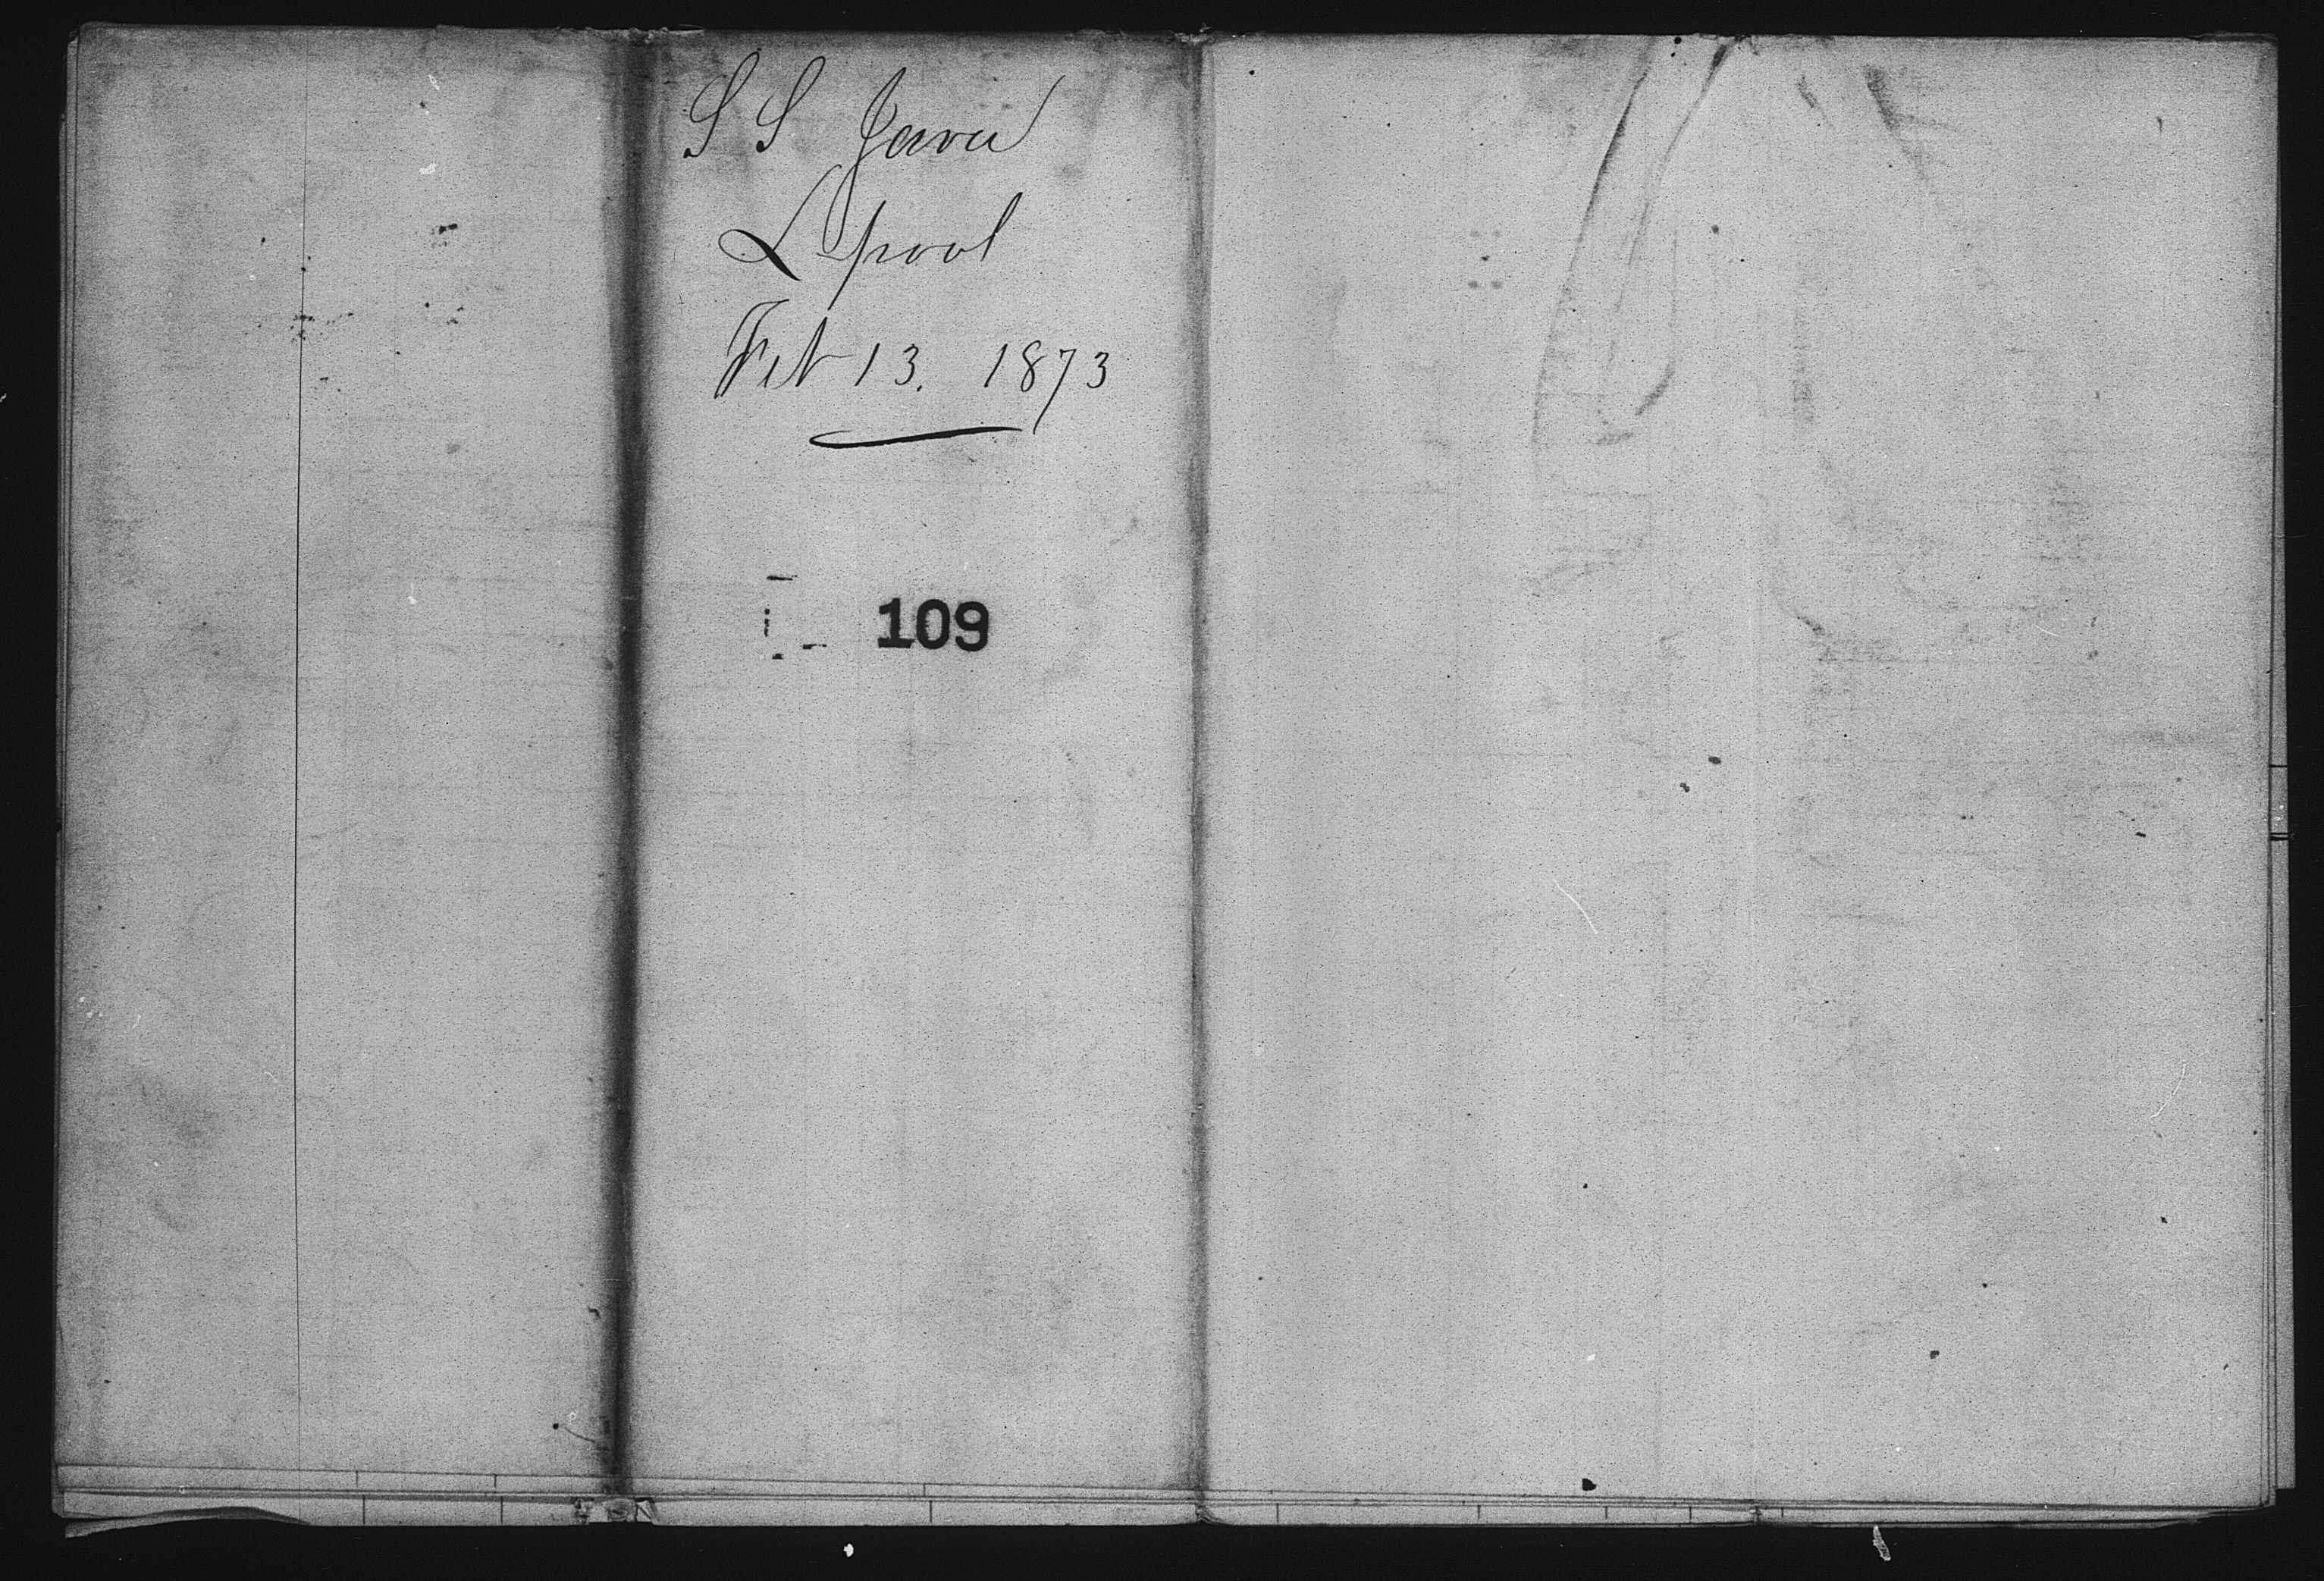 S S Java
L'pool
Feb 13. 1873
109